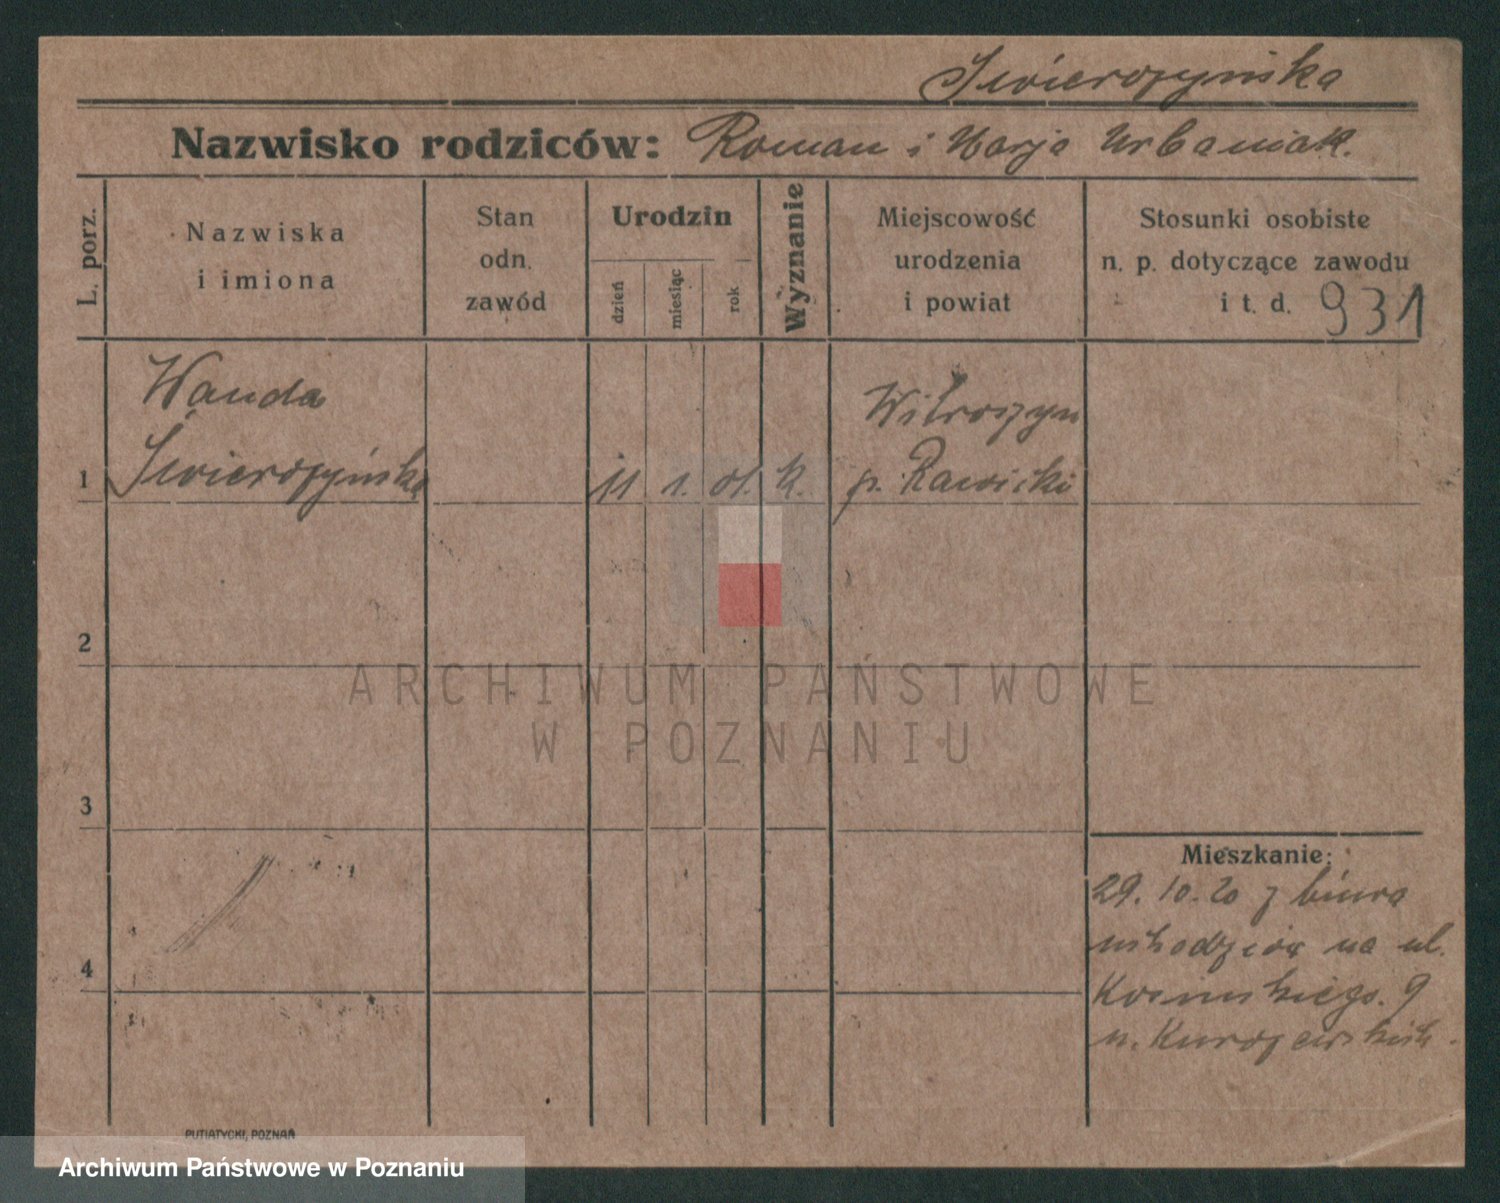 Świerczyńska
Nazwisko rodziców: Roman i Marja Urbaniak.
L. porz.
Nazwiska
i imiona
Stan
odn.
zawód
Urodzin
dzień
miesiąc
rok
Wyznanie
Miejscowość
urodzenia
i powiat
Stosunki osobiste
n. p. dotyczące zawodu
i t. d. 931
Wanda
Świerczyńska
1
11 1. 01. k.
p. Rawicki
2
ARCHIWUM PAŃSTWOWE
W POZNANIU
3
Mieszkanie:
29. 10. 20 z biura
uchodźców na ul.
9
u.
4
PUTIATYCKI, POZNAŃ
Archiwum Państwowe w Poznaniu